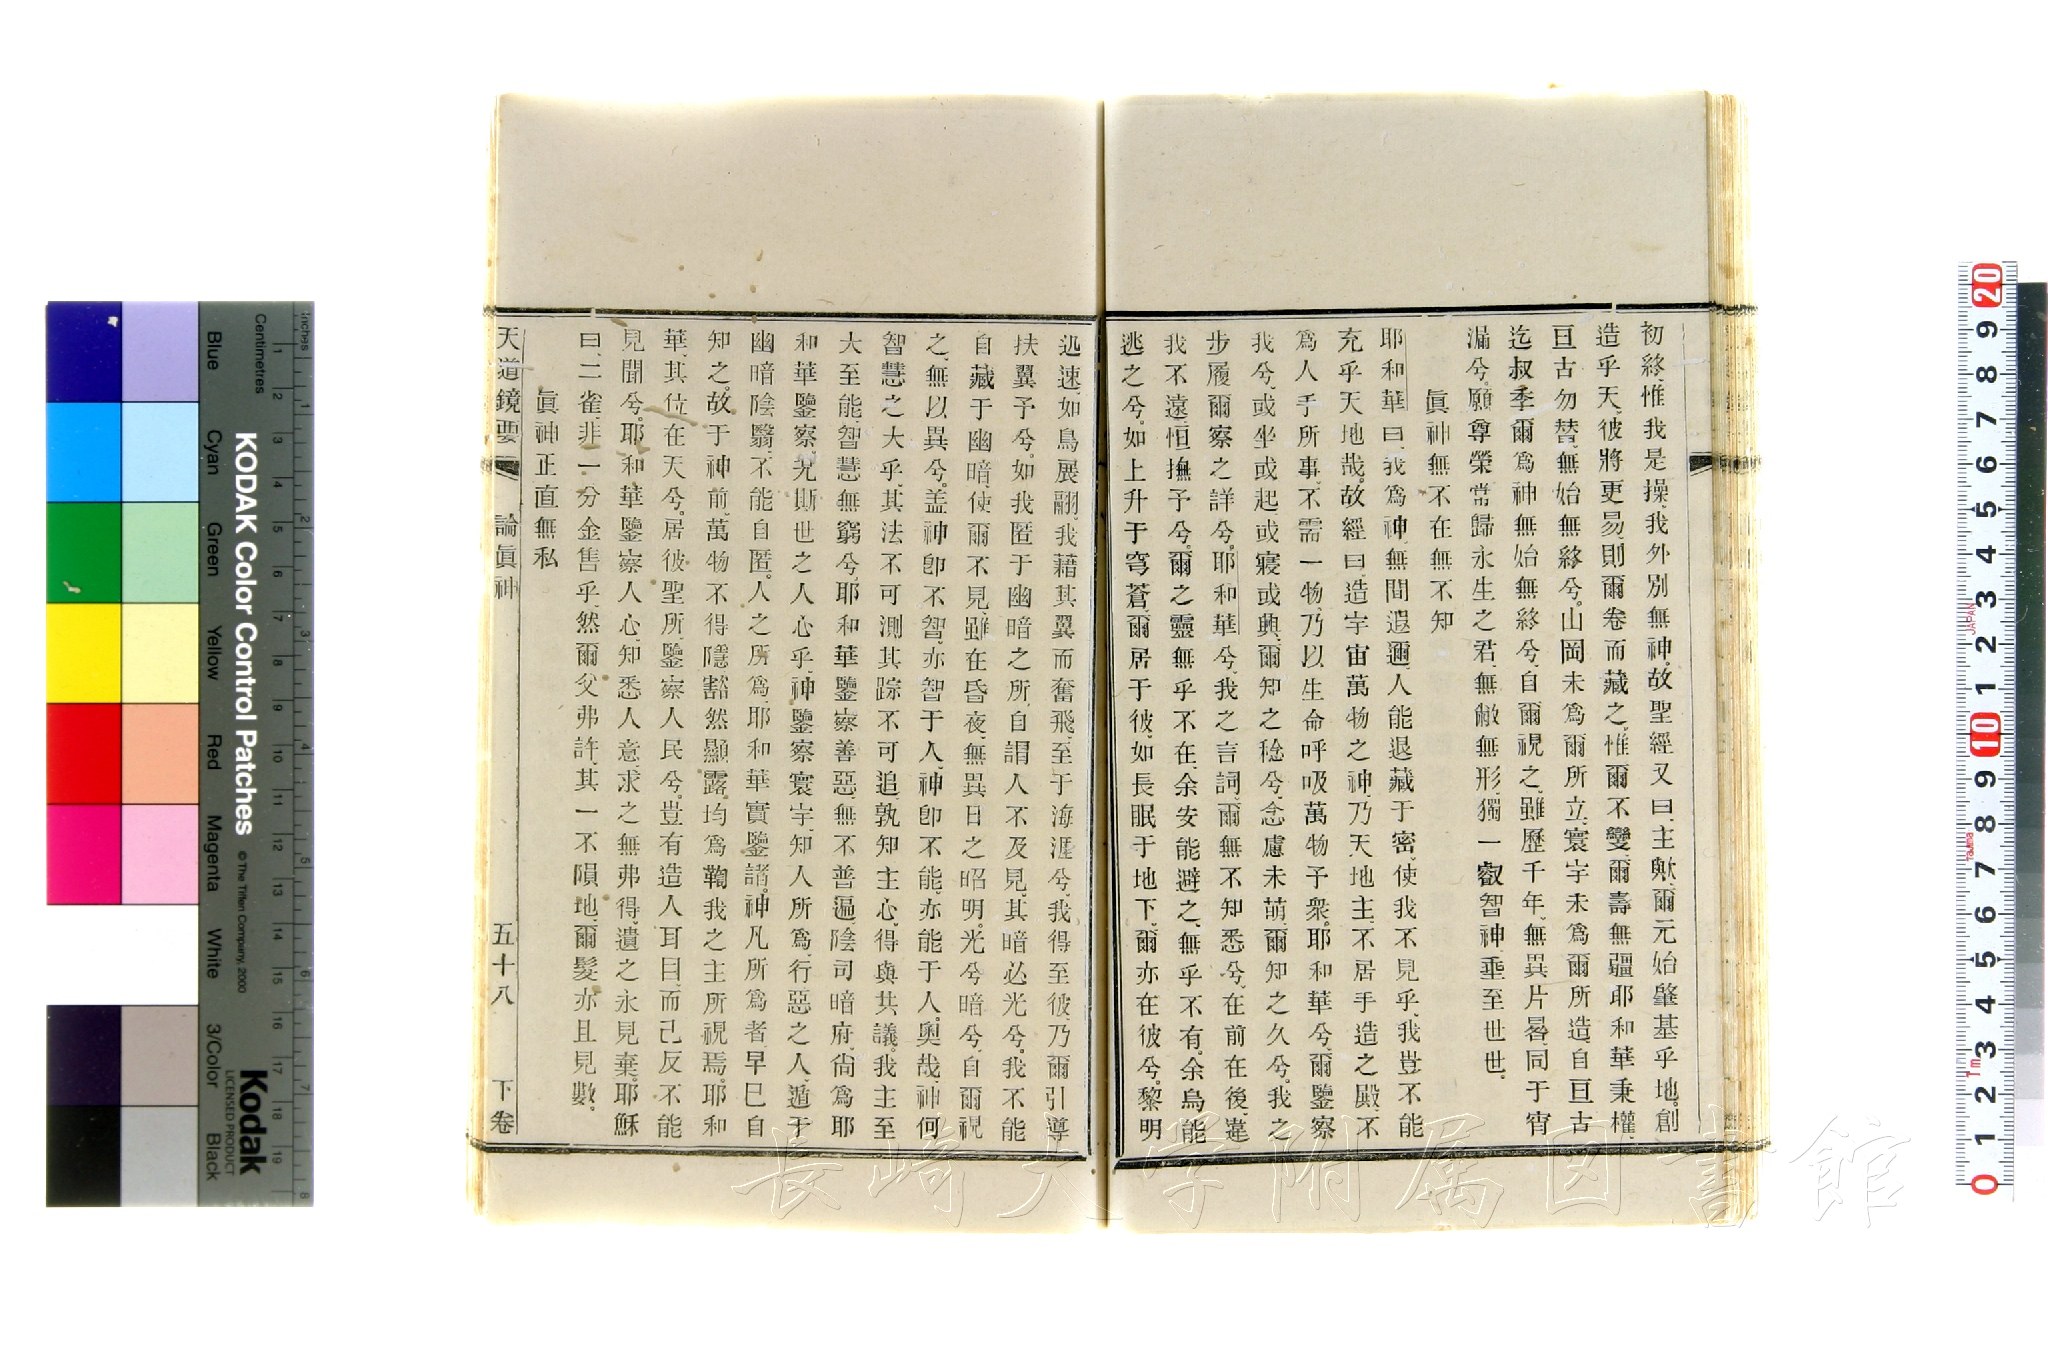 初終、惟我是操、我外別無神、故聖經又曰、主歟、爾元始肇基乎地、創
造乎天、彼將更易、則爾卷而藏之、惟爾不變、爾壽無疆、耶和華秉權、
亘古勿替、無始無終兮、山岡未爲爾所立、寰宇未爲爾所造、自亘古
迄叔季、爾爲神無始無終兮、自爾視之、雖歷千年、無異片晷、同于宵
漏兮、願尊榮常歸永生之君、無敝無形、獨一叡智神、垂至世世、
眞神無不在無不知
耶和華曰、我爲神、無間遐邇、人能退藏于密、使我不見乎、我豈不能
充乎天地哉、故經曰、造宇宙萬物之神、乃天地主、不居手造之殿、不
爲人手所事、不需一物、乃以生命呼吸萬物予衆、耶和華兮、爾鑒察
我兮、或坐或起、或寢或興、爾知之稔兮、念慮未萌、爾知之久兮、我之
步履、爾察之詳兮、耶和華兮、我之言詞、爾無不知悉兮、在前在後、違
我不遠、恒撫予兮、爾之靈無乎不在、余安能避之、無乎不有、余烏能
逃之兮、如上升于穹蒼、爾居于彼、如長眠于地下、爾亦在彼兮、黎明
迅速、如鳥展翮、我藉其翼而奮飛、至于海涯兮、我得至彼、乃爾引導
扶翼予兮、如我匿于幽暗之所、自謂人不及見、其暗必光兮、我不能
自藏于幽暗、使爾不見、雖在昏夜、無異日之昭明、光兮暗兮、自爾視
之、無以異兮、盖神卽不智、亦智于人、神卽不能、亦能于人、奧哉、神何
智慧之大乎、其法不可測、其踪不可追、孰知主心、得與共議、我主至
大至能、智慧無窮兮、耶和華鑒察善惡、無不普遍、陰司暗府、尙爲耶
和華鑒察、况斯世之人心乎、神鑒察寰宇、知人所爲、行惡之人、遁于
幽暗陰翳、不能自匿、人之所爲、耶和華實鑒諸、神凡所爲者、早已自
知之、故于神前、萬物不得隱、豁然顯露、均爲鞠我之主所視焉、耶和
華、其位在天兮、居彼聖所、鑒察人民兮、豈有造人耳目、而己反不能
見聞兮、耶和華鑒察人心、知悉人意、求之無弗得、遺之永見棄、耶穌
曰、二雀非一分金售乎、然爾父弗許、其一不隕地、爾髮亦且見數、
眞神正直無私
天道鏡要 論眞神 五十八 下卷
KODAK Color Control Patches
© The Tiffen Company, 2000
Kodak
LICENSED PRODUCT
Inches
Centimetres
Blue
Cyan
Green
Yellow
Red
Magenta
White
3/Color
Black
JAPAN
長崎大学附属図書館